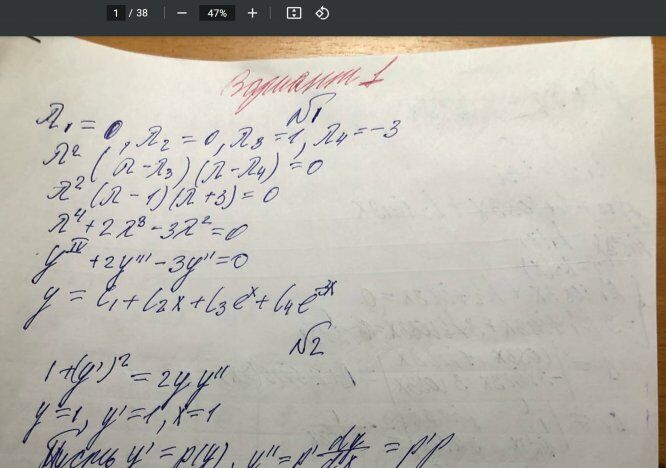 1 / 38 47%
Вариант 1
№1
λ₁ = 0, λ₂ = 0, λ₃ = 1, λ₄ = -3
λ² (λ-λ₃)(λ-λ₄) = 0
λ² (λ-1)(λ+3) = 0
λ⁴ + 2λ³ - 3λ² = 0
y^IV + 2y''' - 3y'' = 0
y = C₁ + C₂x + C₃eˣ + C₄e⁻³ˣ
№2
1+(y')² = 2yy''
y=1, y'=1, x=1
Пусть y' = p(y), y'' = p' dy/dx = p'p